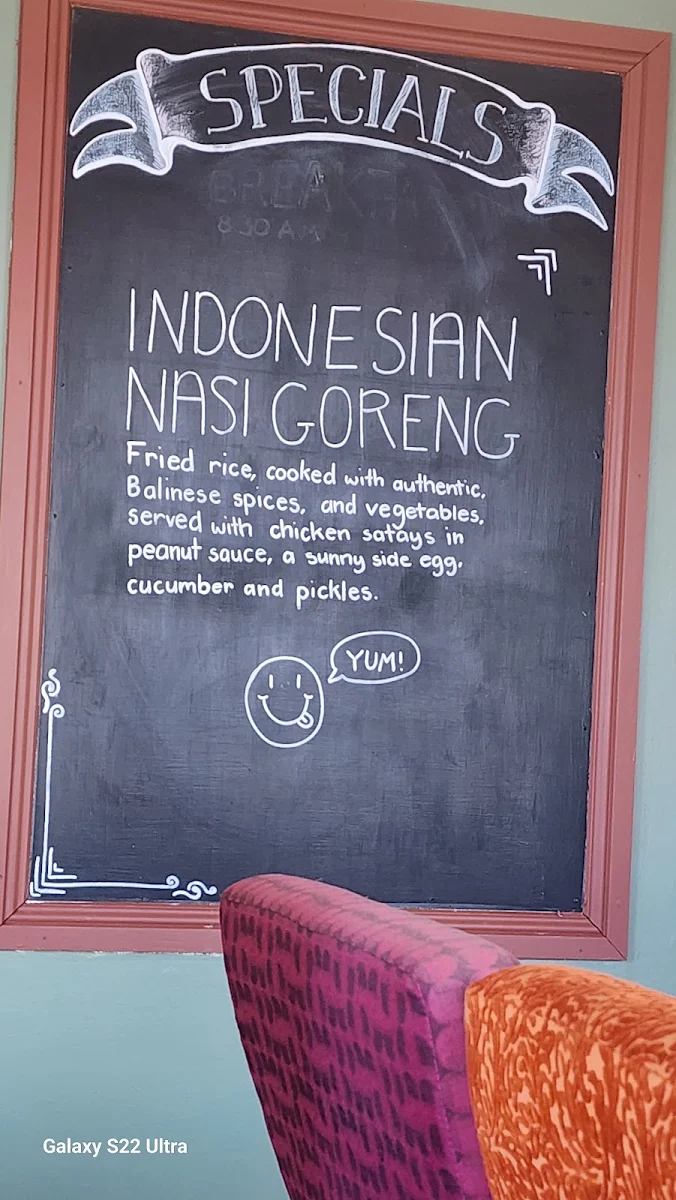 SPECIALS
8:30 AM
INDONESIAN
NASI GORENG
Fried rice, cooked with authentic,
Balinese spices, and vegetables,
served with chicken satays in
peanut sauce, a sunny side egg,
cucumber and pickles.
YUM!
Galaxy S22 Ultra